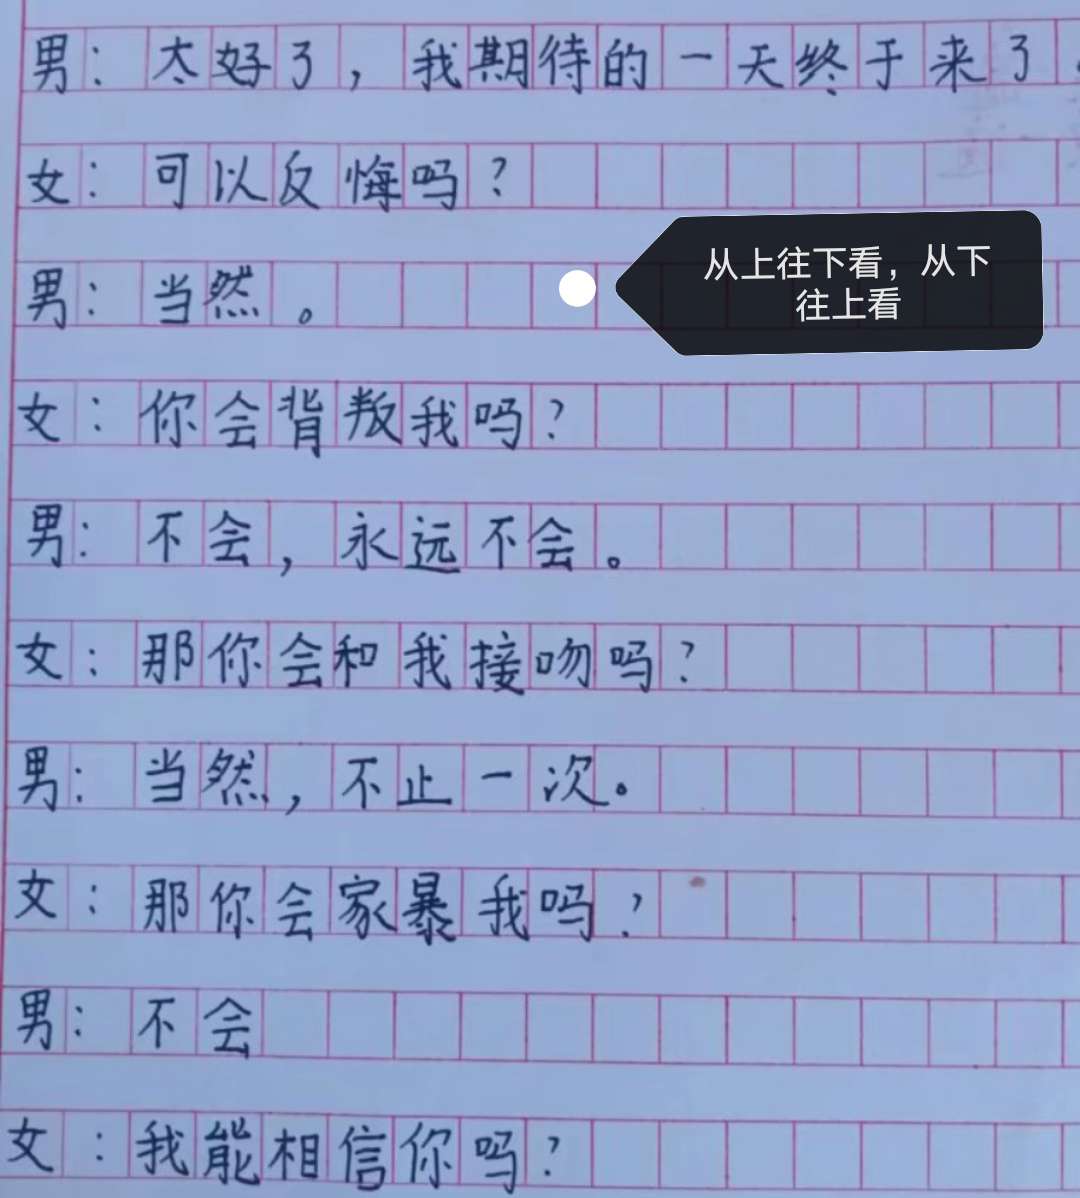 男：太好了，我期待的一天终于来了。
女：可以反悔吗？
男：当然。
从上往下看，从下
往上看
女：你会背叛我吗？
男：不会，永远不会。
女：那你会和我接吻吗？
男：当然，不止一次。
女：那你会家暴我吗？
男：不会
女：我能相信你吗？